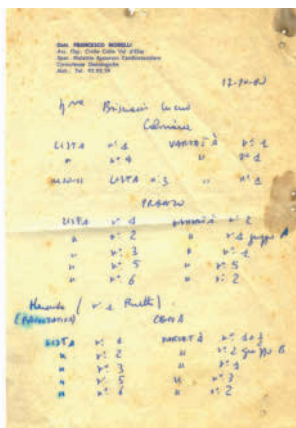 Dott. FRANCESCO MORELLI
Osp. Civile Colle Val d'Elsa
Spec. Malattie Apparato Cardiovascolare
Consulenze Dietologiche
Abit. Tel.
Colazione
LISTA n° 1 VARIETÀ n° 1
" n° 4 " n° 1
LISTA n° 3 " n° 1
PRANZO
LISTA n° 1 VARIETÀ n° 2
" n° 2 " n° 1 gruppo A
" n° 3 " n° 1
" n° 5 " n° 5
" n° 6 " n° 2
Merenda (n° 1 Frutto).
(FACOLTATIVA) CENA
LISTA n° 1 VARIETÀ n° 1
" n° 2 " n° 2 gruppo B
" n° 3 " n° 1
" n° 5 " n° 3
" n° 6 " n° 2